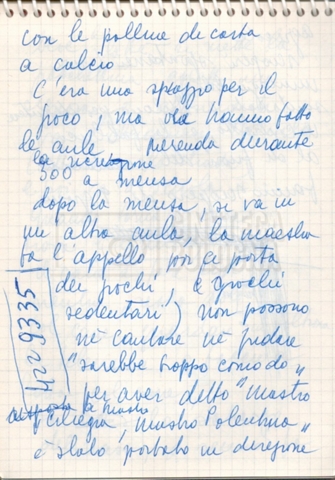 con le palline di carta
a calcio
C'era uno spazio per il
gioco, ma via hanno fatto
le aule. Merenda durante
la ricreazione
300 a mensa
dopo la mensa, si va in
un'altra aula, la maestra
fa l'appello poi ça porta
dei giochi, (giochi
sedentari) non possono
nè cantare nè gridare
"sarebbe troppo comodo„
per aver detto "mastro
a mastro
ciliegia, mastro Polentina„
è stato portato in direzione
4229335